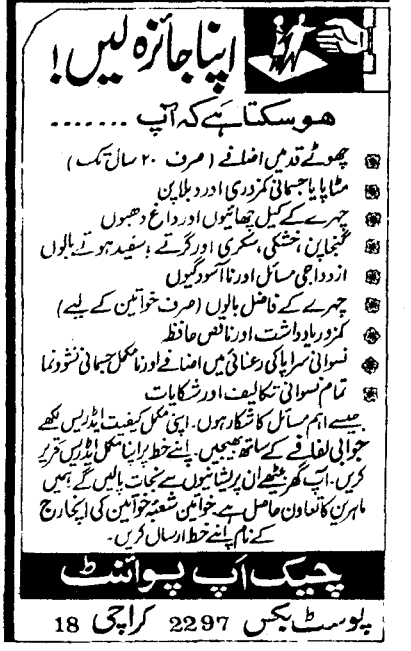 اپنا جائزہ لیں!
ھوسکتا ہے کہ آپ .......
چھوٹے قد میں اضافے (صرف ۲۰ سال تک)
مٹاپا یا جسمانی کمزوری اور دبلاپن
چہرے کے کیل چھائیوں اور داغ دھبوں
گنجاپن، خشکی، سکری اور گرتے، سفید ہوتے بالوں
ازدواجی مسائل اور ناآسودگیوں
چہرے کے فاضل بالوں (صرف خواتین کے لیے)
کمزور یادداشت اور ناقص حافظہ
نسوانی سراپا کی رعنائی میں اضافے اور نامکمل جسمانی نشوونما
تمام نسوانی تکالیف اور شکایات
جیسے اہم مسائل کا شکار ہوں۔ اپنی مکمل کیفیت ایڈریس لکھے
جوابی لفافے کے ساتھ بھیجیں۔ اپنے خط پر اپنا مکمل ایڈریس تحریر
کریں۔ آپ گھر بیٹھے ان پریشانیوں سے نجات پالیں گے ہمیں
ماہرین کا تعاون حاصل ہے۔ خواتین شعبۂ خواتین کی انچارج
کے نام اپنے خط ارسال کریں۔
چیک اَپ پوائنٹ
پوسٹ بکس 2297 کراچی 18